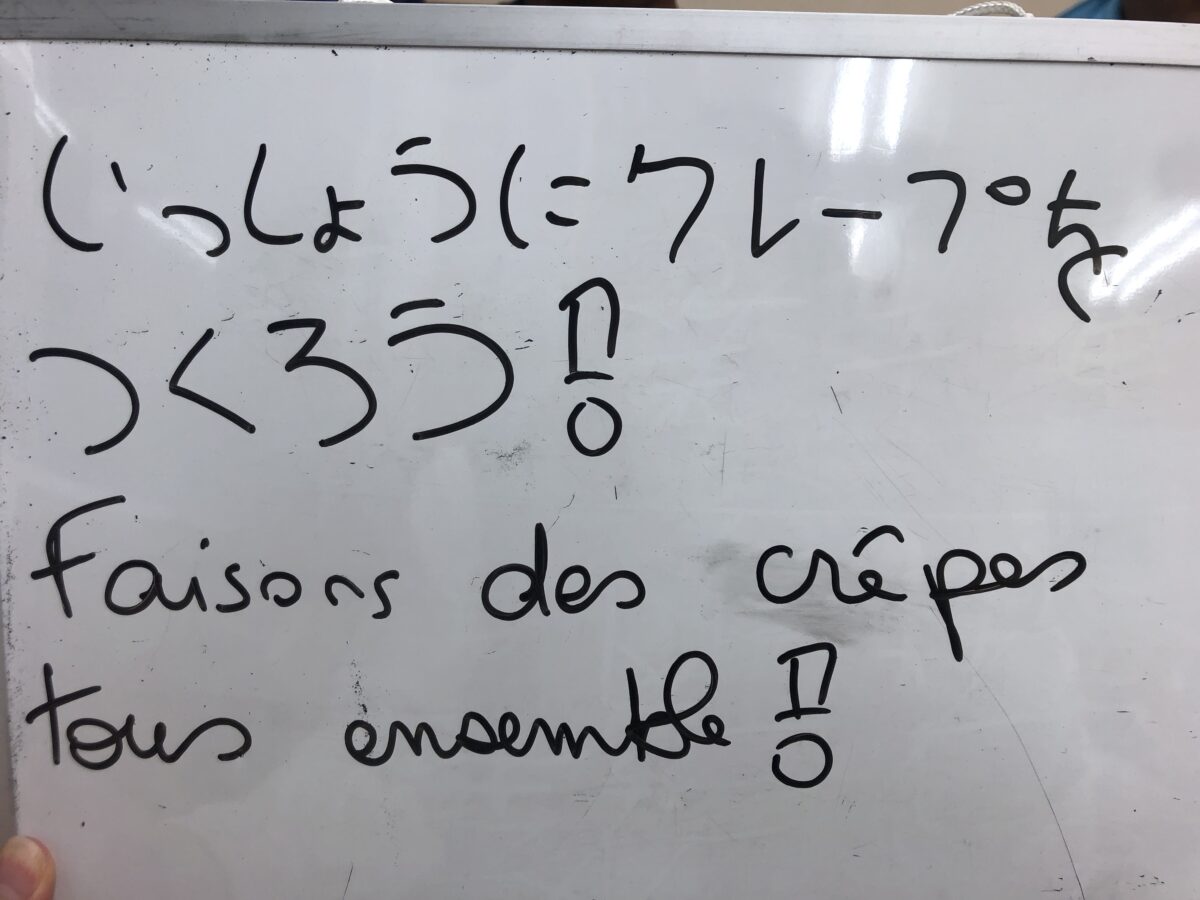 いっしょうにクレープを
つくろう!
Faisons des crêpes
tous ensemble!